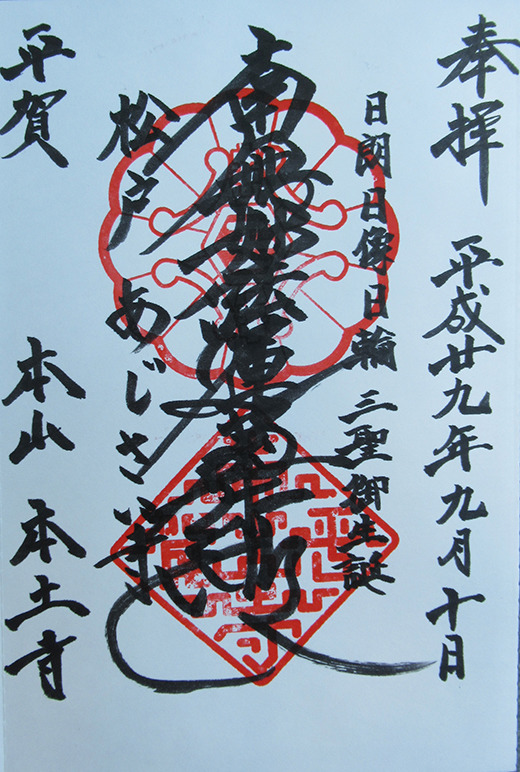 奉拝 平成廿九年九月十日
日朗日像日輪 三聖御生誕
南無妙法蓮華経
松戸 あじさい寺
平賀 本山 本土寺